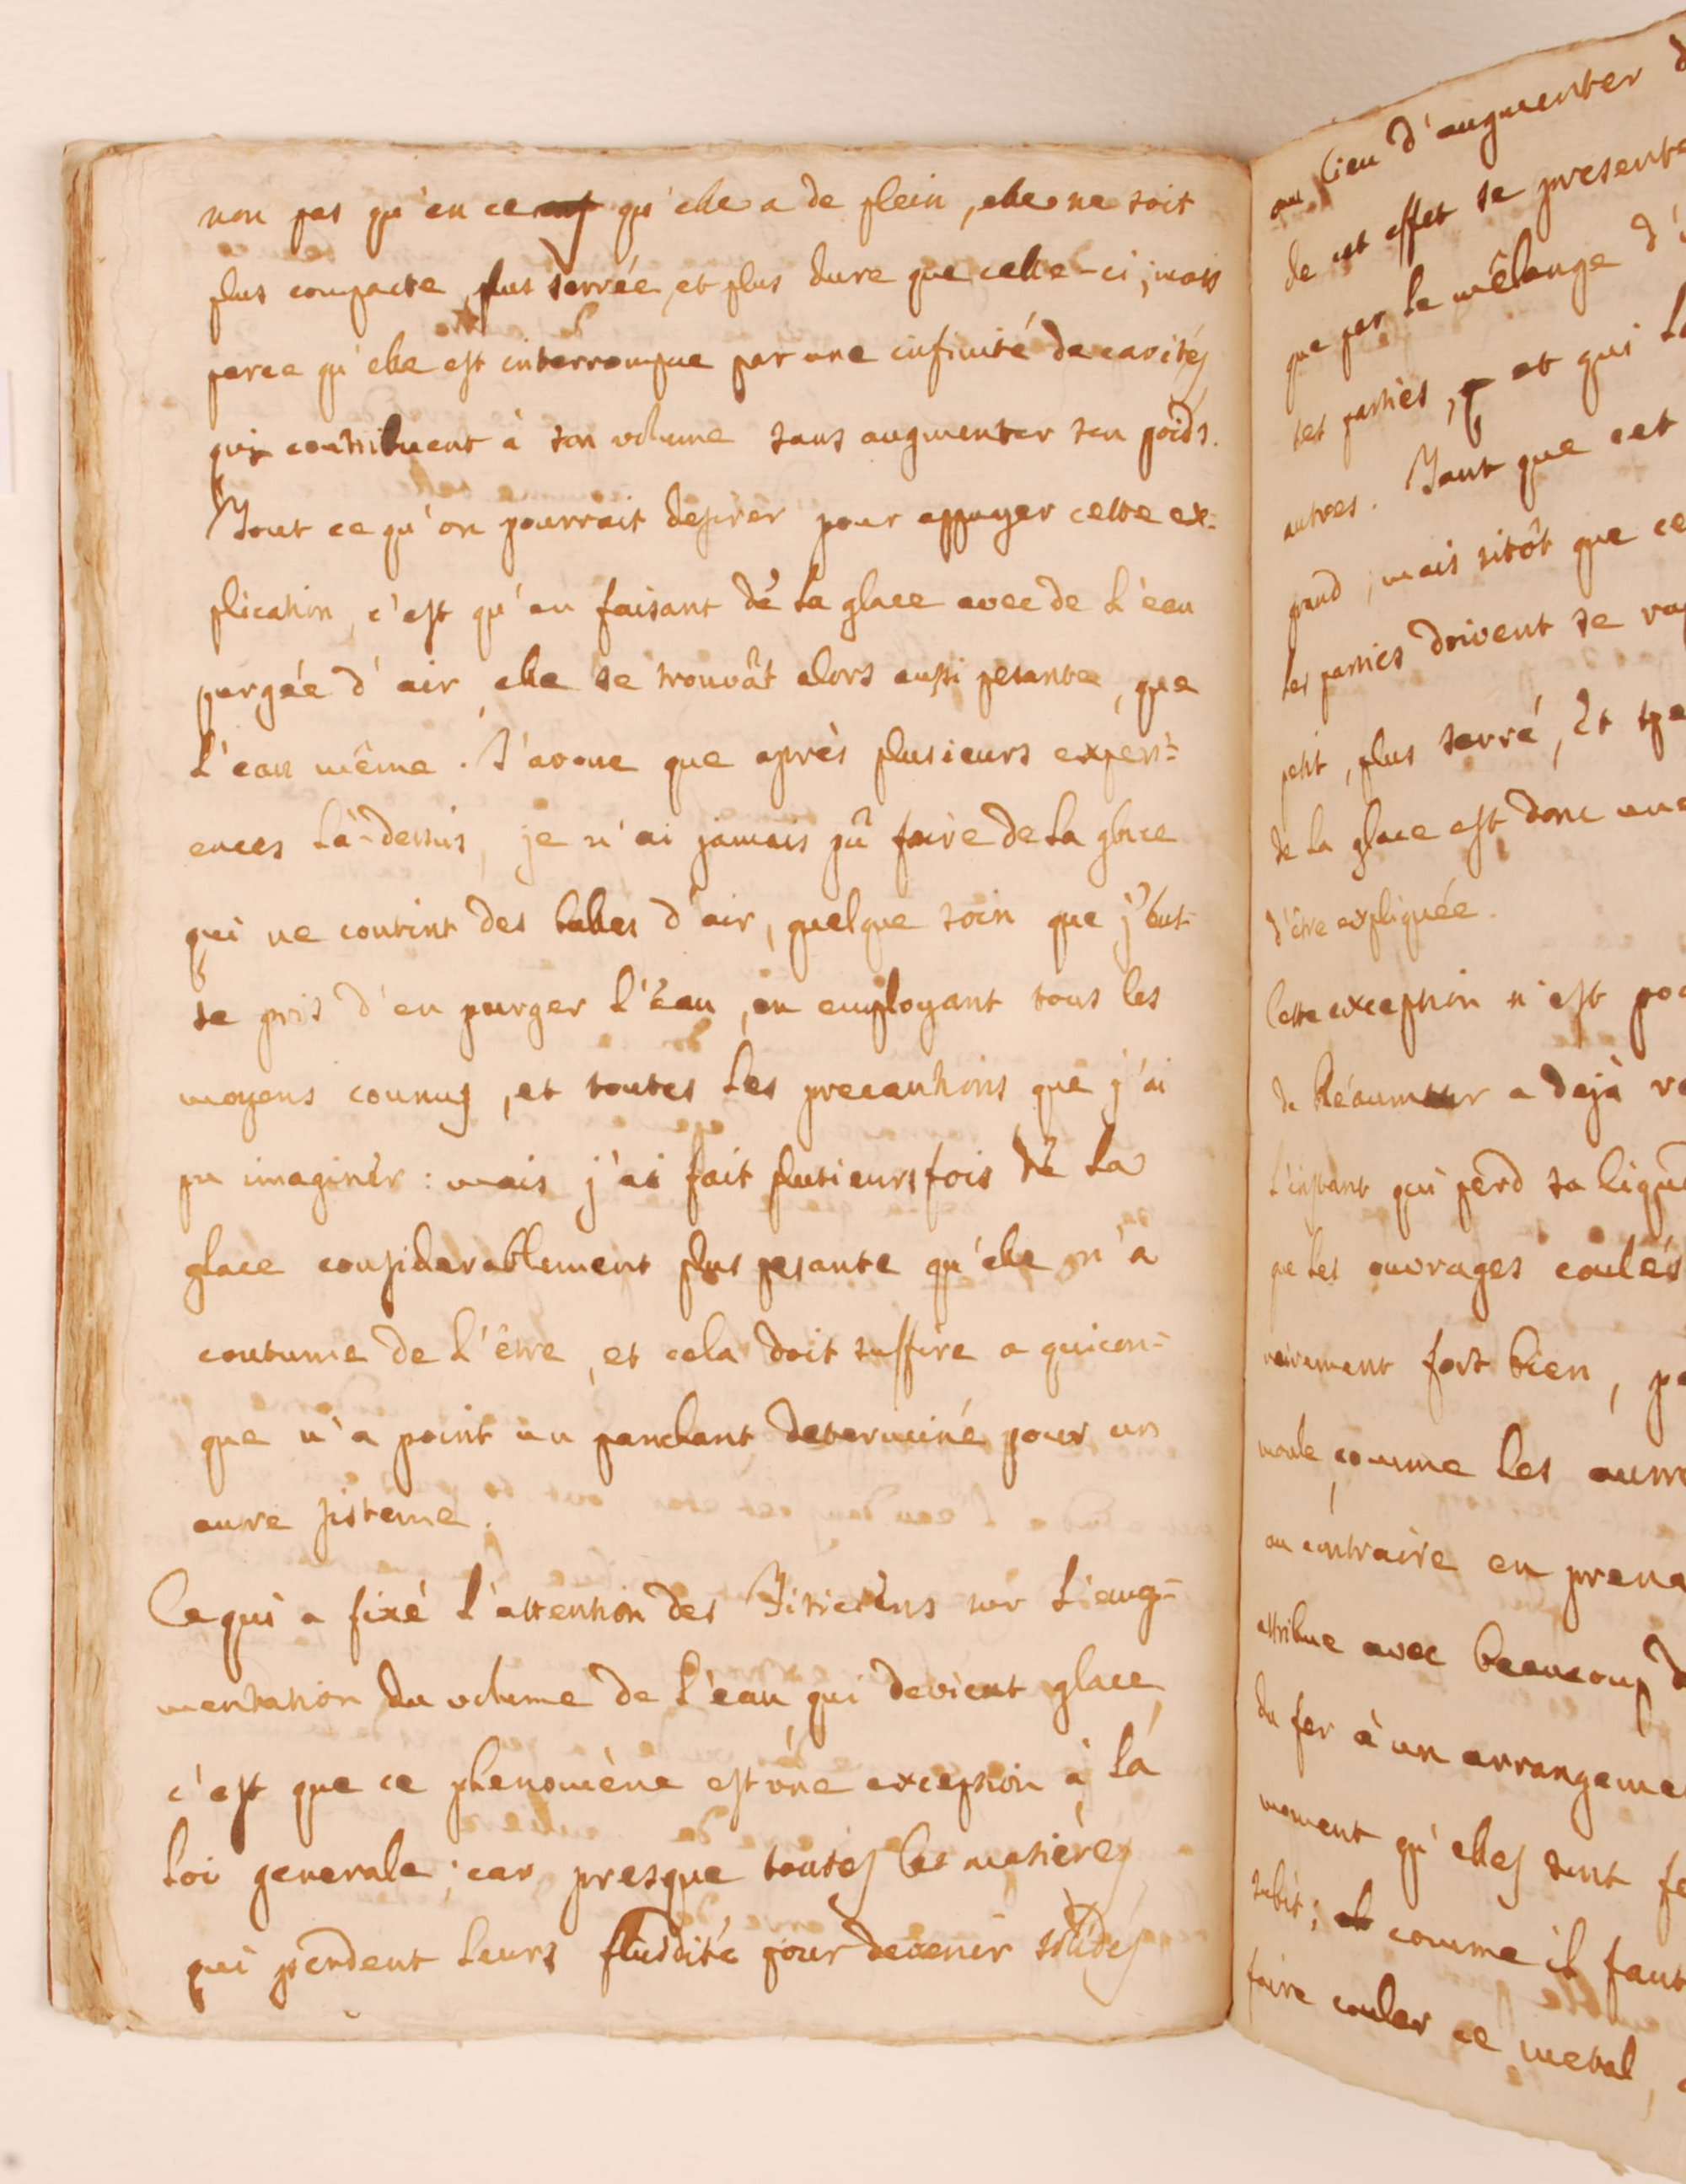 non pas qu'en ce qu'elle a de plein, elle ne soit
plus compacte, plus serrée, et plus dure que celle-ci; mais
parce qu'elle est interrompue par une infinité de cavités
qui contribuent à son volume sans augmenter son poids.
Tout ce qu'on pourrait desirer pour appuyer cette ex-
plication, c'est qu'en faisant de la glace avec de l'eau
purgée d'air, elle se trouvât alors aussi pesante, que
l'eau même. J'avoue que après plusieurs experi-
ences là-dessus, je n'ai jamais pû faire de la glace
qui ne contint des bulles d'air, quelque soin que j'eus-
se pris d'en purger l'eau, en employant tous les
moyens connus, et toutes les precautions que j'ai
pu imaginer: mais j'ai fait plusieurs fois de la
glace considerablement plus pesante qu'elle n'a
coutume de l'être, et cela doit suffire a quicon-
que n'a point un panchant determiné pour un
autre sisteme.
Ce qui a fixé l'attention des Fisiciens sur l'aug-
mentation du volume de l'eau, qui devient glace,
c'est que ce phenomène est une exception à la
loi generale; car presque toutes les matieres
qui perdent leurs fluidité pour devenir solides
au lieu d'augmenter d
de cet effet se presente
que par le mêlange d'
ses parties, et qui l
autres. Tant que cet
grand; mais sitôt que ce
les parties doivent se ra
petit, plus serré, et spe
de la glace est donc une
d'être expliquée.
Cette exception n'est po
de Réaumur a dejà re
l'instant qui perd sa liqui
que les ouvrages coulés
rairement fort bien, pa
moule, comme les autre
au contraire en prena
attribue avec beaucoup d
du fer à un arrangeme
moment qu'elles sont fo
subit; et comme il faut
faire couler ce metal,